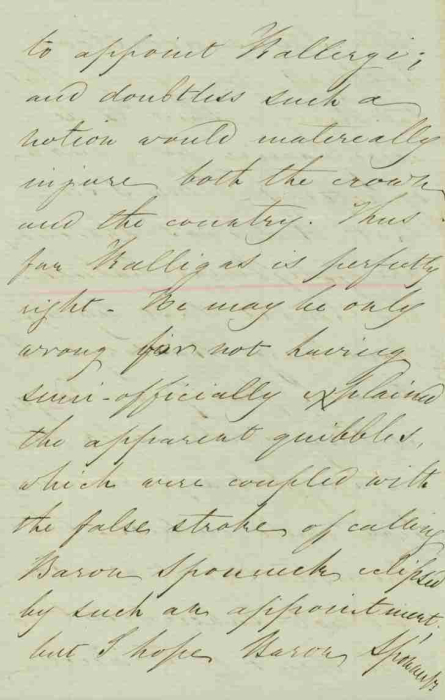 to appoint Kallergi;
and doubtless such a
notion would materially
injure both the crown
and the country. Thus
far Kalligas is perfectly
right - He may be only
wrong for not having
semi-officially explained
the apparent quibbles,
which were coupled with
the false stroke of calling
Baron Sponneck eclipsed
by such an appointment.
but I hope Baron Sponneck